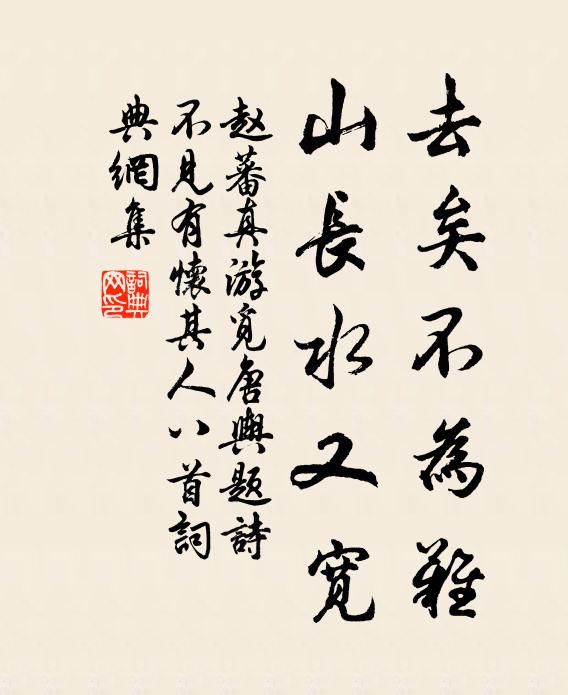 去矣不為難
山長水又寬
赵蕃真游覓唐輿題詩
不見有懷其人八首詞
典網集
詞典網印